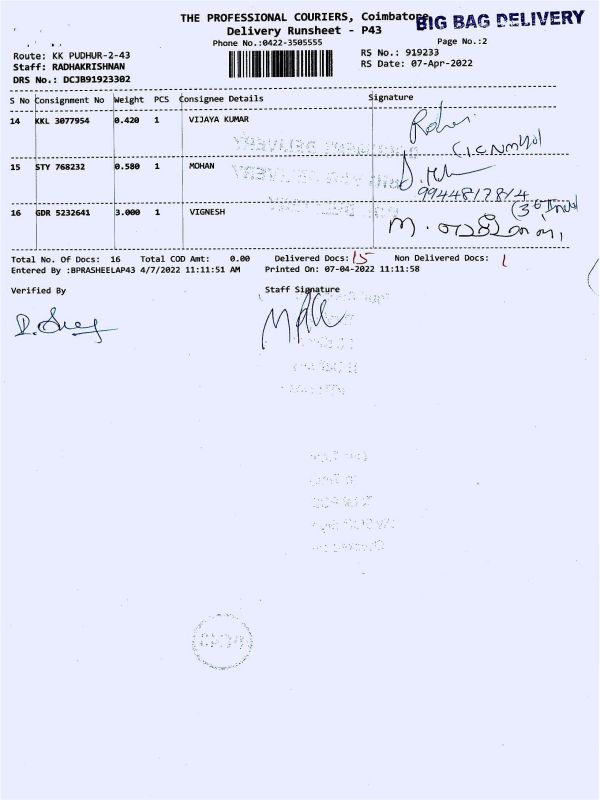 THE PROFESSIONAL COURIERS, Coimbatore
BIG BAG DELIVERY
Delivery Runsheet - P43
Phone No.:0422-3505555
Page No.:2
Route: KK PUDHUR-2-43
RS No.: 919233
Staff: RADHAKRISHNAN
RS Date: 07-Apr-2022
DRS No.: DCJB91923302
S No Consignment No Weight PCS Consignee Details Signature
14 KKL 3077954 0.420 1 VIJAYA KUMAR
15 STY 768232 0.580 1 MOHAN
9944817814
16 GDR 5232641 3.000 1 VIGNESH
Total No. Of Docs: 16 Total COD Amt: 0.00 Delivered Docs: 15 Non Delivered Docs: 1
Entered By :BPRASHEELAP43 4/7/2022 11:11:51 AM Printed On: 07-04-2022 11:11:58
Verified By Staff Signature